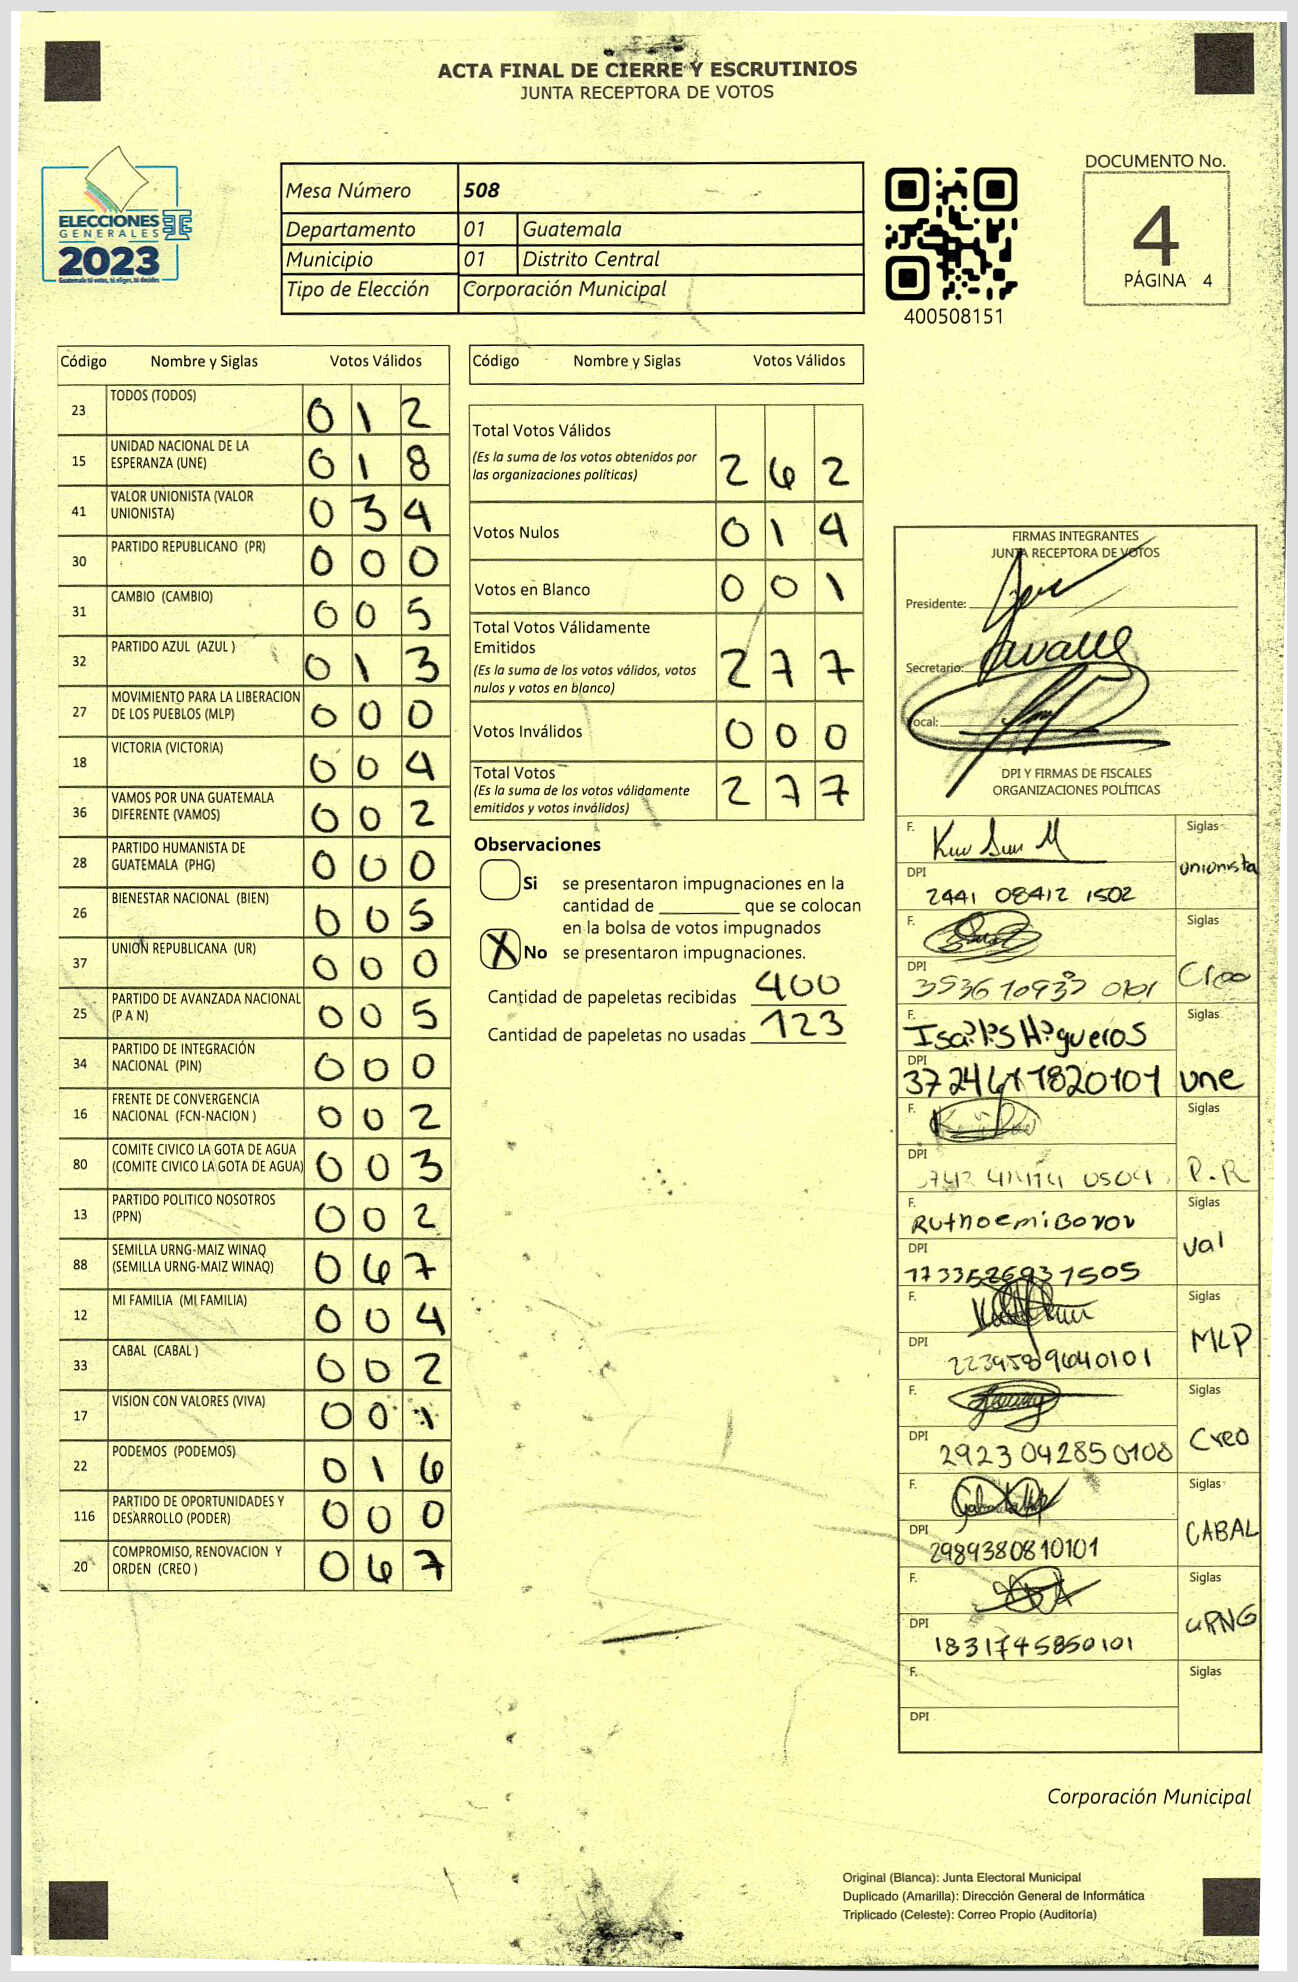 ACTA FINAL DE CIERRE Y ESCRUTINIOS
JUNTA RECEPTORA DE VOTOS
ELECCIONES
GENERALES
2023
Guatemala tú votas, tú eliges, tú decides
Mesa Número 508
Departamento 01 Guatemala
Municipio 01 Distrito Central
Tipo de Elección Corporación Municipal
400508151
DOCUMENTO No.
4
PÁGINA 4
Código Nombre y Siglas Votos Válidos
23 TODOS (TODOS) 0 1 2
15 UNIDAD NACIONAL DE LA ESPERANZA (UNE) 0 1 8
41 VALOR UNIONISTA (VALOR UNIONISTA) 0 3 4
30 PARTIDO REPUBLICANO (PR) 0 0 0
31 CAMBIO (CAMBIO) 0 0 5
32 PARTIDO AZUL (AZUL ) 0 1 3
27 MOVIMIENTO PARA LA LIBERACION DE LOS PUEBLOS (MLP) 0 0 0
18 VICTORIA (VICTORIA) 0 0 4
36 VAMOS POR UNA GUATEMALA DIFERENTE (VAMOS) 0 0 2
28 PARTIDO HUMANISTA DE GUATEMALA (PHG) 0 0 0
26 BIENESTAR NACIONAL (BIEN) 0 0 5
37 UNION REPUBLICANA (UR) 0 0 0
25 PARTIDO DE AVANZADA NACIONAL (P A N) 0 0 5
34 PARTIDO DE INTEGRACIÓN NACIONAL (PIN) 0 0 0
16 FRENTE DE CONVERGENCIA NACIONAL (FCN-NACION ) 0 0 2
80 COMITE CIVICO LA GOTA DE AGUA (COMITE CIVICO LA GOTA DE AGUA) 0 0 3
13 PARTIDO POLITICO NOSOTROS (PPN) 0 0 2
88 SEMILLA URNG-MAIZ WINAQ (SEMILLA URNG-MAIZ WINAQ) 0 6 7
12 MI FAMILIA (MI FAMILIA) 0 0 4
33 CABAL (CABAL ) 0 0 2
17 VISION CON VALORES (VIVA) 0 0 1
22 PODEMOS (PODEMOS) 0 1 6
116 PARTIDO DE OPORTUNIDADES Y DESARROLLO (PODER) 0 0 0
20 COMPROMISO, RENOVACION Y ORDEN (CREO ) 0 6 7
Código Nombre y Siglas Votos Válidos
Total Votos Válidos
(Es la suma de los votos obtenidos por
las organizaciones políticas) 2 6 2
Votos Nulos 0 1 4
Votos en Blanco 0 0 1
Total Votos Válidamente
Emitidos
(Es la suma de los votos válidos, votos
nulos y votos en blanco) 2 7 7
Votos Inválidos 0 0 0
Total Votos
(Es la suma de los votos válidamente
emitidos y votos inválidos) 2 7 7
Observaciones
Si se presentaron impugnaciones en la
cantidad de ________ que se colocan
en la bolsa de votos impugnados
X No se presentaron impugnaciones.
Cantidad de papeletas recibidas 400
Cantidad de papeletas no usadas 123
FIRMAS INTEGRANTES
JUNTA RECEPTORA DE VOTOS
Presidente:
Secretario:
Vocal:
DPI Y FIRMAS DE FISCALES
ORGANIZACIONES POLÍTICAS
F. Siglas
unionista
DPI
2441 08412 1502
F. Siglas
Creo
DPI
F. Isaías Higueros Siglas
DPI
3724611820101 une
F. Siglas
DPI
P.R
F. Siglas
Val
DPI
F. Siglas
MLP
DPI
F. Siglas
Creo
DPI
2923042850108
F. Siglas
CABAL
DPI
2989380810101
F. Siglas
URNG
DPI
1831745850101
F. Siglas
DPI
Corporación Municipal
Original (Blanca): Junta Electoral Municipal
Duplicado (Amarilla): Dirección General de Informática
Triplicado (Celeste): Correo Propio (Auditoría)